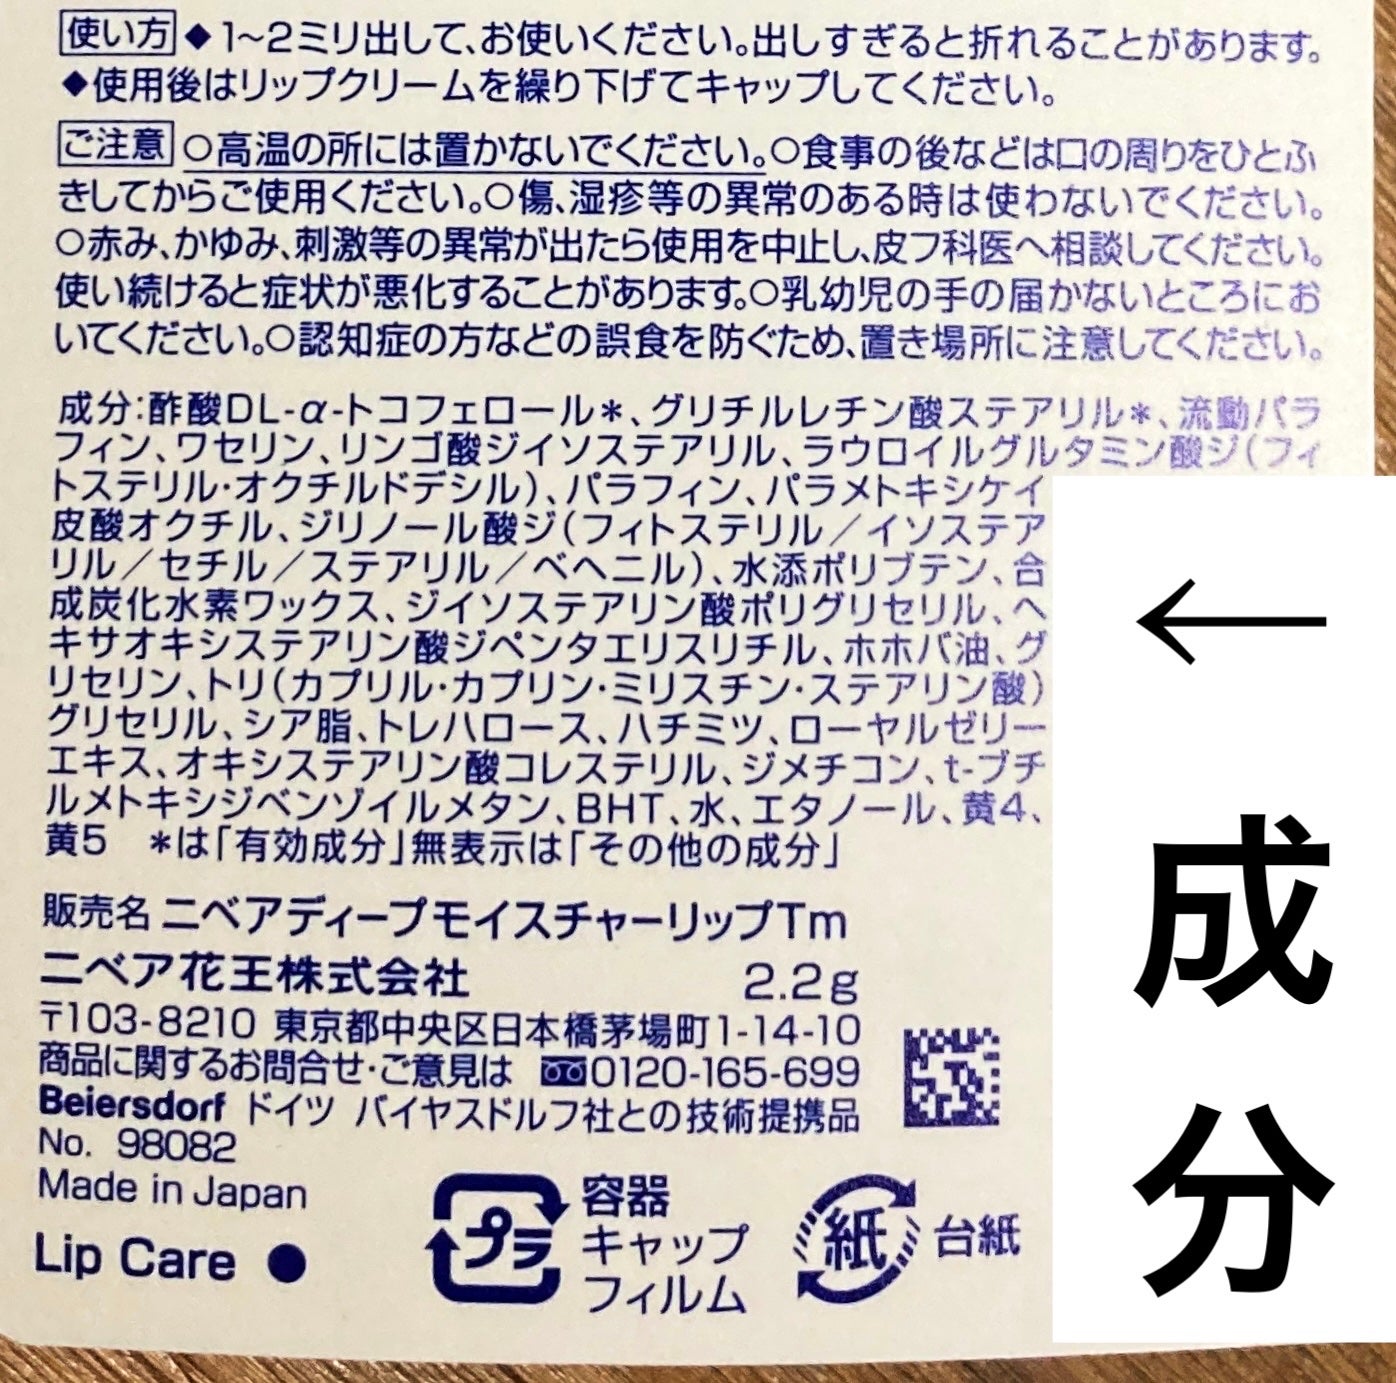 使い方 ◆1~2ミリ出して、お使いください。出しすぎると折れることがあります。
◆使用後はリップクリームを繰り下げてキャップしてください。
ご注意 ○高温の所には置かないでください。○食事の後などは口の周りをひとふ
きしてからご使用ください。○傷、湿疹等の異常のある時は使わないでください。
○赤み、かゆみ、刺激等の異常が出たら使用を中止し、皮フ科医へ相談してください。
使い続けると症状が悪化することがあります。○乳幼児の手の届かないところにお
いてください。○認知症の方などの誤食を防ぐため、置き場所に注意してください。
成分:酢酸DL-α-トコフェロール*、グリチルレチン酸ステアリル*、流動パラ
フィン、ワセリン、リンゴ酸ジイソステアリル、ラウロイルグルタミン酸ジ(フィ
トステリル・オクチルドデシル)、パラフィン、パラメトキシケイ
皮酸オクチル、ジリノール酸ジ(フィトステリル/イソステア
リル/セチル/ステアリル/ベヘニル)、水添ポリブテン、合
成炭化水素ワックス、ジイソステアリン酸ポリグリセリル、ヘ
キサオキシステアリン酸ジペンタエリスリチル、ホホバ油、グ
リセリン、トリ(カプリル・カプリン・ミリスチン・ステアリン酸)
グリセリル、シア脂、トレハロース、ハチミツ、ローヤルゼリー
エキス、オキシステアリン酸コレステリル、ジメチコン、t-ブチ
ルメトキシジベンゾイルメタン、BHT、水、エタノール、黄4、
黄5 *は「有効成分」無表示は「その他の成分」
販売名 ニベアディープモイスチャーリップTm
ニベア花王株式会社 2.2g
〒103-8210 東京都中央区日本橋茅場町1-14-10
商品に関するお問合せ・ご意見は 0120-165-699
Beiersdorf ドイツ バイヤスドルフ社との技術提携品
No. 98082
Made in Japan
Lip Care ●
プラ
容器
キャップ
フィルム
紙 台紙
←成分